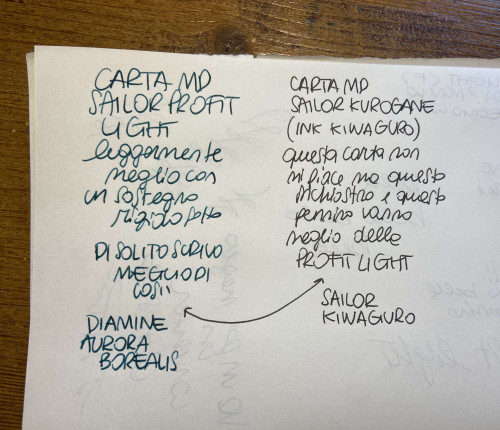 CARTA MD
SAILOR PROFIT
LIGHT
leggermente
meglio con
un sostegno
rigido sotto
DI SOLITO SCRIVO
MEGLIO DI
COSÌ
DIAMINE
AURORA
BOREALIS
CARTA MD
SAILOR KUROGANE
(INK KIWAGURO)
questa carta non
mi piace ma questo
inchiostro e questo
pennino vanno
meglio della
PROFIT LIGHT
SAILOR
KIWAGURO